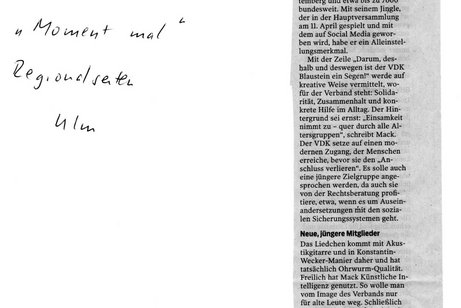 „Moment mal“
Regionalseiten
Ulm
temberg und etwa bis zu 7000
bundesweit. Mit seinem Jingle,
der in der Hauptversammlung
am 11. April gespielt und mit dem
auf Social Media geworben
wird, habe er ein Alleinstel-
lungsmerkmal.
Mit der Zeile „Darum, des-
halb und deswegen ist der VDK
Blaustein ein Segen!“ werde auf
kreative Weise vermittelt, wo-
für der Verband steht: Solida-
rität, Zusammenhalt und kon-
krete Hilfe im Alltag. Der Hin-
tergrund sei ernst: „Einsamkeit
nimmt zu – quer durch alle Al-
tersgruppen“, schreibt Mack.
Der VDK setze auf einen mo-
dernen Zugang, der Menschen
erreiche, bevor sie den „An-
schluss verlieren“. Es solle auch
eine jüngere Zielgruppe ange-
sprochen werden, da auch sie
von der Rechtsberatung profi-
tiere, etwa, wenn es um Ausein-
andersetzungen mit den sozia-
len Sicherungssystemen geht.
Neue, jüngere Mitglieder
Das Liedchen kommt mit Akus-
tikgitarre und in Konstantin-
Wecker-Manier daher und hat
tatsächlich Ohrwurm-Qualität.
Freilich hat Mack Künstliche In-
telligenz genutzt. So wolle man
vom Image des Verbands nur
für alte Leute weg. Schließlich